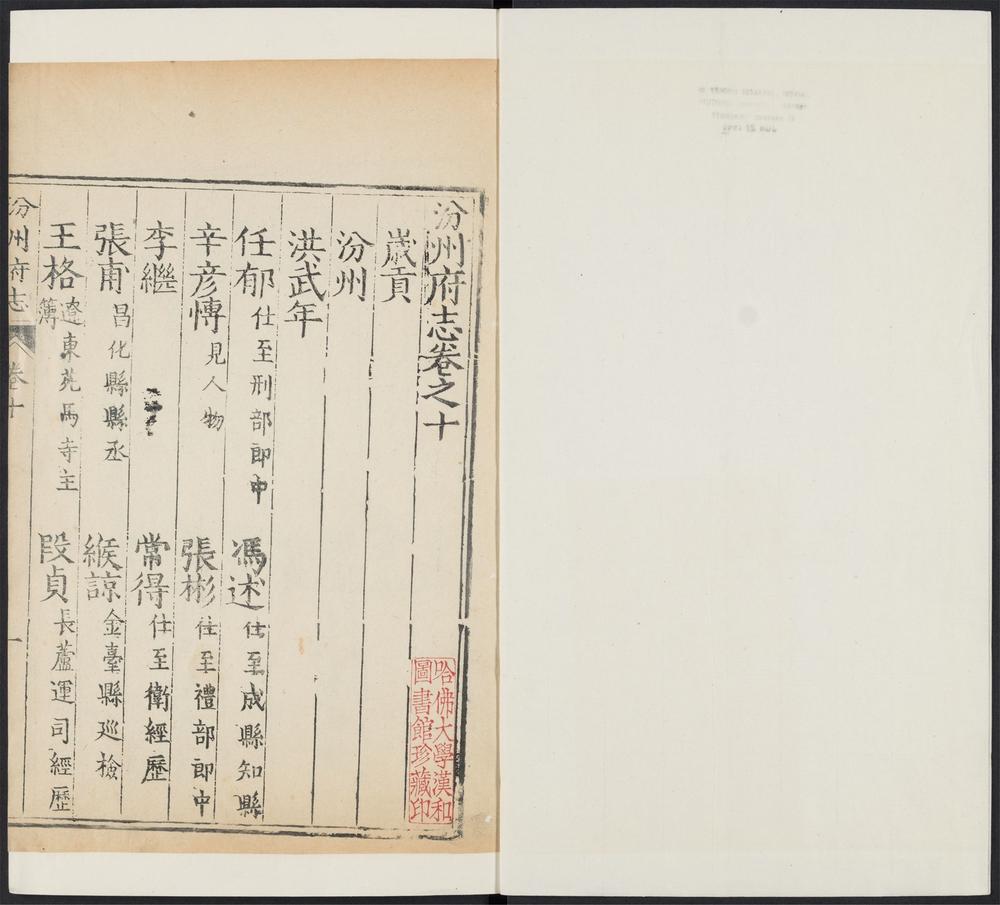 汾州府志卷之十
歲貢
汾州
洪武年
任郁 仕至刑部郎中 馮述 仕至成縣知縣
辛彦慱 見人物 張彬 仕至禮部郎中
李繼 常得 仕至衛經歷
張甫 昌化縣縣丞 緱諒 金臺縣巡檢
王格 遼東苑馬寺主簿 段貞 長蘆運司經歷
汾州府志 卷十 一
哈佛大學漢和
圖書館珍藏印